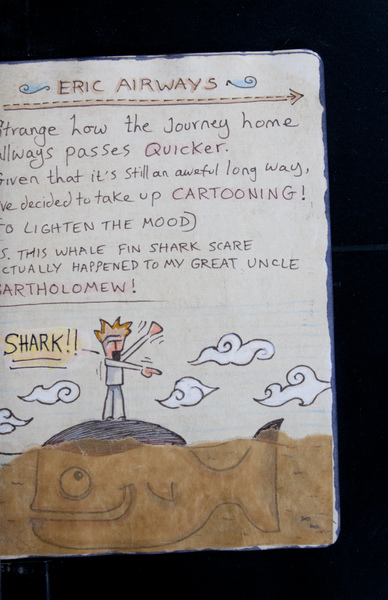 ERIC AIRWAYS
Strange how the Journey home
allways passes QUICKER.
Given that it's still an aweful long way,
've decided to take up CARTOONING!
TO LIGHTEN THE MOOD)
S. THIS WHALE FIN SHARK SCARE
ACTUALLY HAPPENED TO MY GREAT UNCLE
BARTHOLOMEW!
SHARK!!